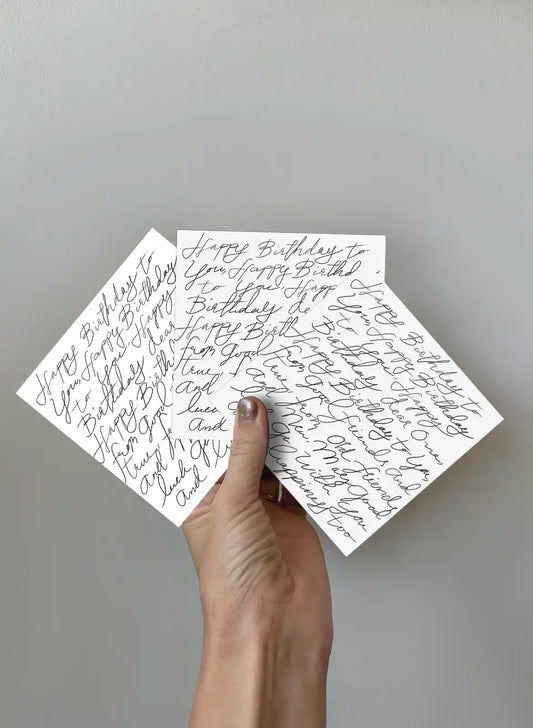 Happy Birthday to
You, Happy Birthday
to You, Happy
Birthday dear
Happy Birth
from good
true f
and
luck
and
Happy Birthday to
You, Happy Birthd
to You, Happ
Birthday de
Happy Birth
from Good
true
and
luck
And
Happy Birthday to
You, Happy Birthday
to You, Happy
Birthday dear One,
Happy Birthday to You,
from good friends and
true, from old friends
and new, may good
luck go with you
and happiness too